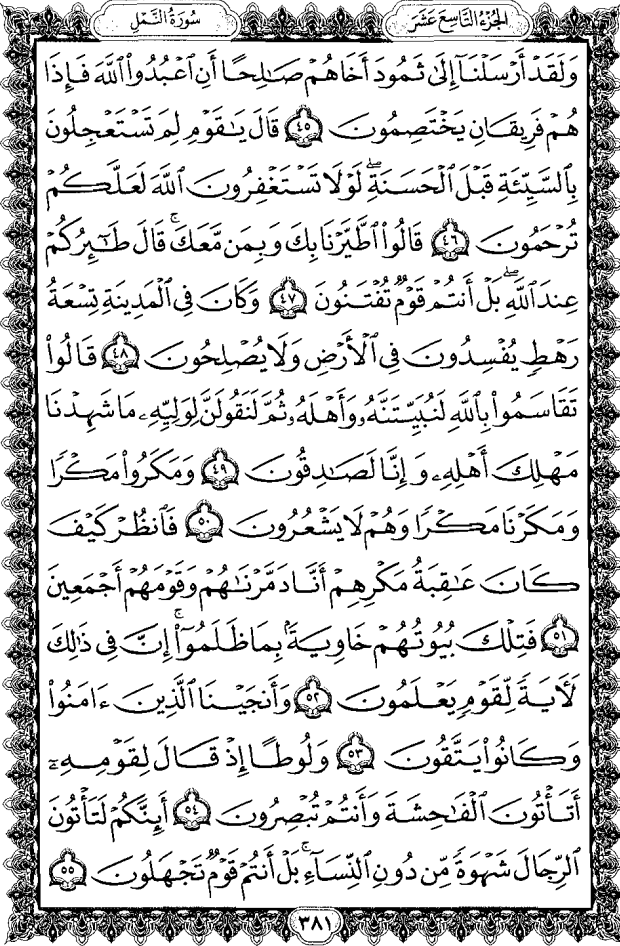 الجزء التاسع عشر
سورة النمل
وَلَقَدْ أَرْسَلْنَآ إِلَىٰ ثَمُودَ أَخَاهُمْ صَٰلِحًا أَنِ ٱعْبُدُوا۟ ٱللَّهَ فَإِذَا
هُمْ فَرِيقَانِ يَخْتَصِمُونَ ٤٥ قَالَ يَٰقَوْمِ لِمَ تَسْتَعْجِلُونَ
بِٱلسَّيِّئَةِ قَبْلَ ٱلْحَسَنَةِ ۖ لَوْلَا تَسْتَغْفِرُونَ ٱللَّهَ لَعَلَّكُمْ
تُرْحَمُونَ ٤٦ قَالُوا۟ ٱطَّيَّرْنَا بِكَ وَبِمَن مَّعَكَ ۚ قَالَ طَٰٓئِرُكُمْ
عِندَ ٱللَّهِ ۖ بَلْ أَنتُمْ قَوْمٌ تُفْتَنُونَ ٤٧ وَكَانَ فِى ٱلْمَدِينَةِ تِسْعَةُ
رَهْطٍ يُفْسِدُونَ فِى ٱلْأَرْضِ وَلَا يُصْلِحُونَ ٤٨ قَالُوا۟
تَقَاسَمُوا۟ بِٱللَّهِ لَنُبَيِّتَنَّهُۥ وَأَهْلَهُۥ ثُمَّ لَنَقُولَنَّ لِوَلِيِّهِۦ مَا شَهِدْنَا
مَهْلِكَ أَهْلِهِۦ وَإِنَّا لَصَٰدِقُونَ ٤٩ وَمَكَرُوا۟ مَكْرًا
وَمَكَرْنَا مَكْرًا وَهُمْ لَا يَشْعُرُونَ ٥٠ فَٱنظُرْ كَيْفَ
كَانَ عَٰقِبَةُ مَكْرِهِمْ أَنَّا دَمَّرْنَٰهُمْ وَقَوْمَهُمْ أَجْمَعِينَ
٥١ فَتِلْكَ بُيُوتُهُمْ خَاوِيَةًۢ بِمَا ظَلَمُوٓا۟ ۗ إِنَّ فِى ذَٰلِكَ
لَءَايَةً لِّقَوْمٍ يَعْلَمُونَ ٥٢ وَأَنجَيْنَا ٱلَّذِينَ ءَامَنُوا۟
وَكَانُوا۟ يَتَّقُونَ ٥٣ وَلُوطًا إِذْ قَالَ لِقَوْمِهِۦٓ
أَتَأْتُونَ ٱلْفَٰحِشَةَ وَأَنتُمْ تُبْصِرُونَ ٥٤ أَئِنَّكُمْ لَتَأْتُونَ
ٱلرِّجَالَ شَهْوَةً مِّن دُونِ ٱلنِّسَآءِ ۚ بَلْ أَنتُمْ قَوْمٌ تَجْهَلُونَ ٥٥
٣٨١